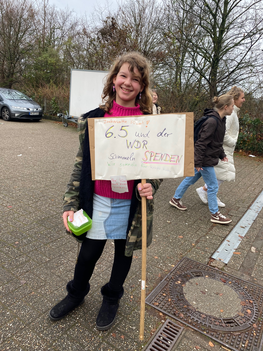 6.5 und der
WDR
sammeln SPENDEN